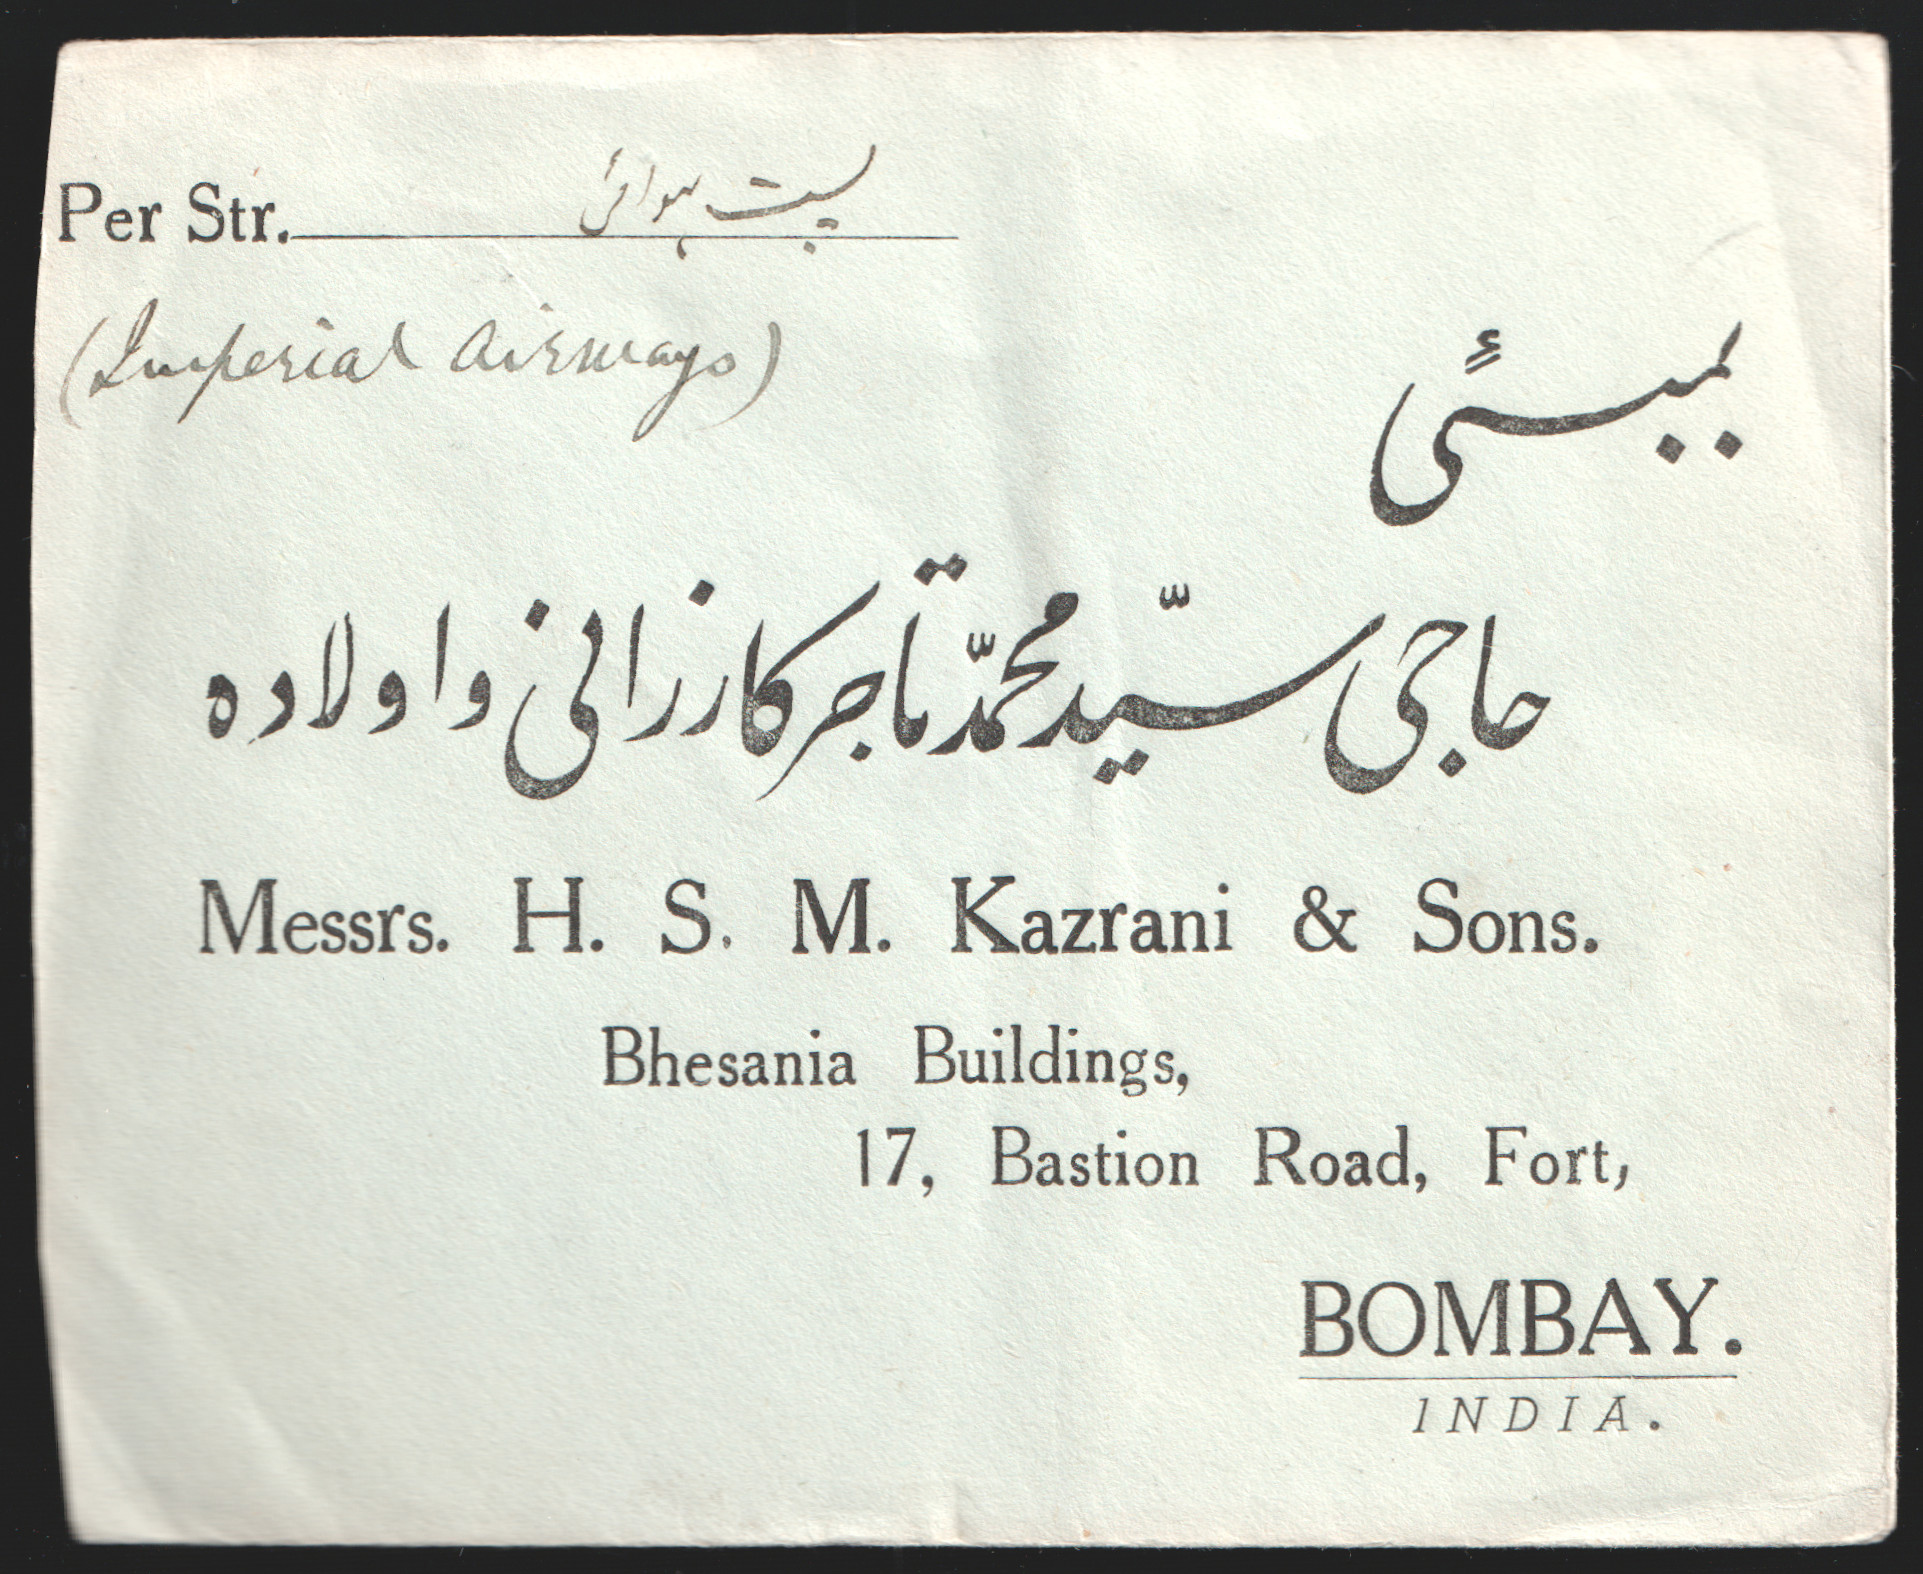 Per Str. پست هوائی
(Imperial Airways)
بمبئی
حاجی سیّد محمّد تاجر کازرانی و اولاده
Messrs. H. S. M. Kazrani & Sons.
Bhesania Buildings,
17, Bastion Road, Fort,
BOMBAY.
INDIA.